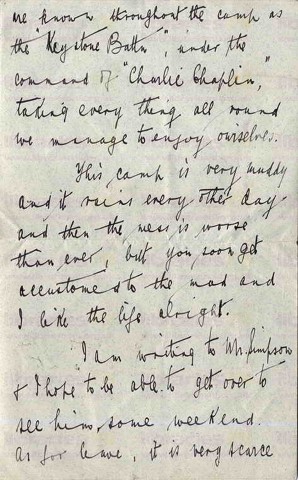 are known throughout the camp as
the "Keystone Battn", under the
command of "Charlie Chaplin,"
taking every thing all round
we manage to enjoy ourselves.
This camp is very muddy
and it rains every other day
and then the mess is worse
than ever, but you soon get
accustomed to the mud and
I like the life alright.
I am writing to Mr. Simpson
& I hope to be able to get over to
see him some weekend.
As for leave, it is very scarce